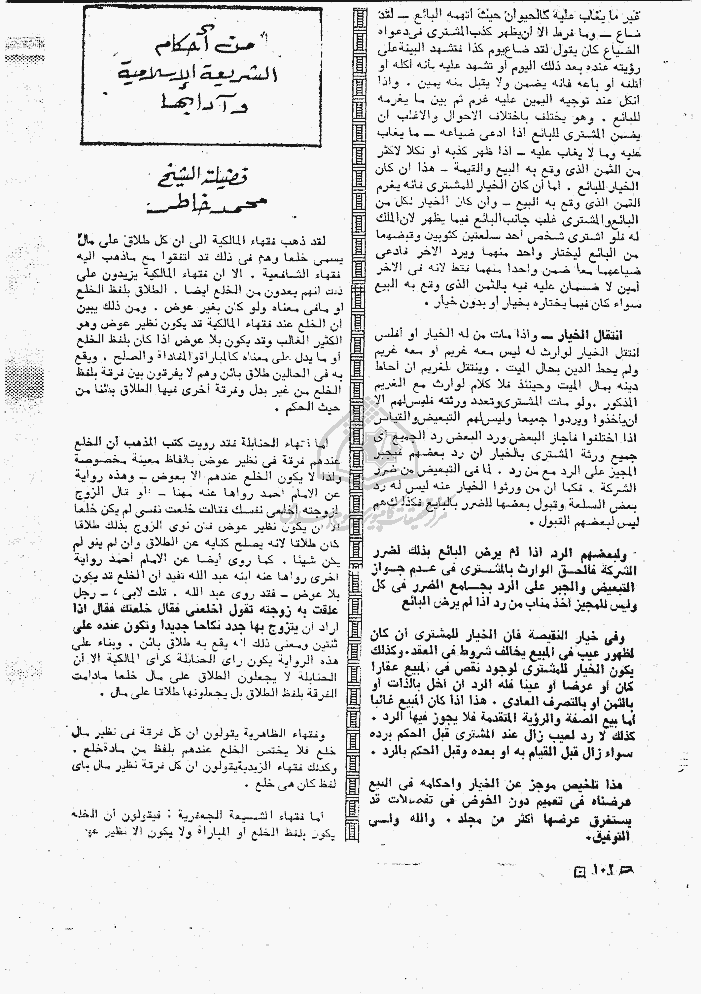 غير ما يغاب عليه كالحيوان حيث اتهمه البائع — لقد
ضاع — وما فرط الا ان يظهر كذب المشترى فى دعواه
الضياع كان يقول لقد ضاع يوم كذا فتشهد البينة على
رؤيته عنده بعد ذلك اليوم أو تشهد عليه بأنه أكله أو
أتلفه أو باعه فانه يضمن ولا يقبل منه يمين . واذا
انكل عند توجيه اليمين عليه غرم ثم بين ما يغرمه
للبائع . وهو يختلف باختلاف الاحوال والاغلب أن
يضمن المشترى للبائع اذا ادعى ضياعه — ما يغاب
عليه وما لا يغاب عليه — اذا ظهر كذبه أو نكلا لاكثر
من الثمن الذى وقع به البيع والقيمة — هذا ان كان
الخيار للبائع . أما أن كان الخيار للمشترى فانه يغرم
الثمن الذى وقع به البيع — وان كان الخيار لكل من
البائع والمشترى غلب جانب البائع فيما يظهر لان الملك
له فلو اشترى شخص أحد سلعتين كثوبين وقبضهما
من البائع ليختار واحد منهما ويرد الاخر فادعى
ضياعهما معا ضمن واحدا منهما فقط لانه فى الاخر
أمين لا ضمان عليه فيه بالثمن الذى وقع به البيع
سواء كان فيما يختاره بخيار أو بدون خيار .
انتقال الخيار — واذا مات من له الخيار أو أفلس
انتتل الخيار لوارث له ليس معه غريم أو معه غريم
ولم يحط الدين بحال الميت . وينتتل لغريم ان أحاط
دينه بمال الميت وحينئذ فلا كلام لوارث مع الغريم
المذكور . ولو مات المشترى وتعدد ورثته فليس لهم الا
أن يأخذوا ويردوا جميعا وليس لهم التبعيض والقياس
اذا اختلفوا فأجاز البعض ورد البعض رد الجميع أى
جميع ورثة المشترى بالخيار ان رد بعضهم فيجبر
المجيز على الرد مع من رد . لما فى التبعيض من ضرر
الشركة . فكما ان من ورثوا الخيار عنه ليس له رد
بعض السلعة وقبول بعضها للضرر بالبايع فكذلك هم
ليس لبعضهم القبول .
ولبعضهم الرد اذا لم يرض البائع بذلك لضرر
الشركة فالحق الوارث بالمشترى فى عدم جواز
التبعيض والجبر على الرد بجامع الضرر فى كل
وليس للمجيز أخذ مناب من رد اذا لم يرض البائع
وفى خيار النقيصة فان الخيار للمشترى أن كان
لظهور عيب فى المبيع يخالف شروط فى العقد . وكذلك
يكون الخيار للمشترى لوجود نقص فى المبيع عقارا
كان أو عرضا او عينا فله الرد ان اخل بالذات أو
بالثمن أو بالتصرف العادى . هذا اذا كان المبيع غائبا
أما بيع الصفة والرؤية المتقدمة فلا يجوز فيها الرد .
كذلك لا رد لعيب زال عند المشترى قبل الحكم برده
سواء زال قبل القيام به او بعده وقبل الحكم بالرد .
هذا تلخيص موجز عن الخيار واحكامه فى البيع
عرضناه فى تعميم دون الخوض فى تفصيلات قد
يستغرق عرضها أكثر من مجلد . والله ولى
التوفيق .
من أحكام
الشريعة الإسلامية
وآدابها
فضيلة الشيخ
محمد خاطر
لقد ذهب فقهاء المالكية الى ان كل طلاق على مال
يسمى خلعا وهم فى ذلك قد اتفقوا مع ماذهب اليه
فقهاء الشافعية . الا ان فقهاء المالكية يزيدون على
ذلك أنهم يعدون من الخلع أيضا . الطلاق بلفظ الخلع
او مافى معناه ولو كان بغير عوض . ومن ذلك يبين
أن الخلع عند فقهاء المالكية قد يكون نظير عوض وهو
الكثير الغالب وقد يكون بلا عوض اذا كان بلفظ الخلع
أو ما يدل على معناه كالمباراة والمفاداة والصلح . ويقع
به فى الحالين طلاق بائن وهم لا يفرقون بين فرقة بلفظ
الخلع من غير بدل وفرقة أخرى فيها الطلاق بائنا من
حيث الحكم .
أما فقهاء الحنابلة فقد رويت كتب المذهب أن الخلع
عندهم فرقة فى نظير عوض بالفاظ معينة مخصوصة
ولذا لا يكون الخلع عندهم الا بعوض — وهذه رواية
عن الامام أحمد رواها عنه مهنا — او قال الزوج
لزوجته اخلعى نفسك فقالت خلعت نفسى لم يكن خلعا
الا أن يكون نظير عوض فان نوى الزوج بذلك طلاقا
كان طلاقا لانه يصلح كنايه عن الطلاق وأن لم ينو لم
يكن شيئا . كما روى أيضا عن الامام أحمد رواية
أخرى رواها عنه ابنه عبد الله تفيد أن الخلع قد يكون
بلا عوض — فقد روى عبد الله . قلت لابى : رجل
علقت به زوجته تقول اخلعنى فقال خلعتك فقال اذا
اراد أن يتزوج بها جدد نكاحا جديدا وتكون عنده على
ثنتين ومعنى ذلك أنه يقع به طلاق بائن . وبناء على
هذه الرواية يكون راى الحنابلة كرأى المالكية الا أن
الحنابلة لا يجعلون الطلاق على مال خلعا مادامت
الفرقة بلفظ الطلاق بل يجعلونها طلاقا على مال .
وفقهاء الظاهرية يقولون ان كل فرقة فى نظير مال
خلع فلا يختص الخلع عندهم بلفظ من مادة خلع .
وكذلك فقهاء الزيدية يقولون ان كل فرقة نظير مال باى
لفظ كان هى خلع .
أما فقهاء الشيعة الجعفرية : فيقولون أن الخلع
يكون بلفظ الخلع أو المباراة ولا يكون الا نظير
١٠٢